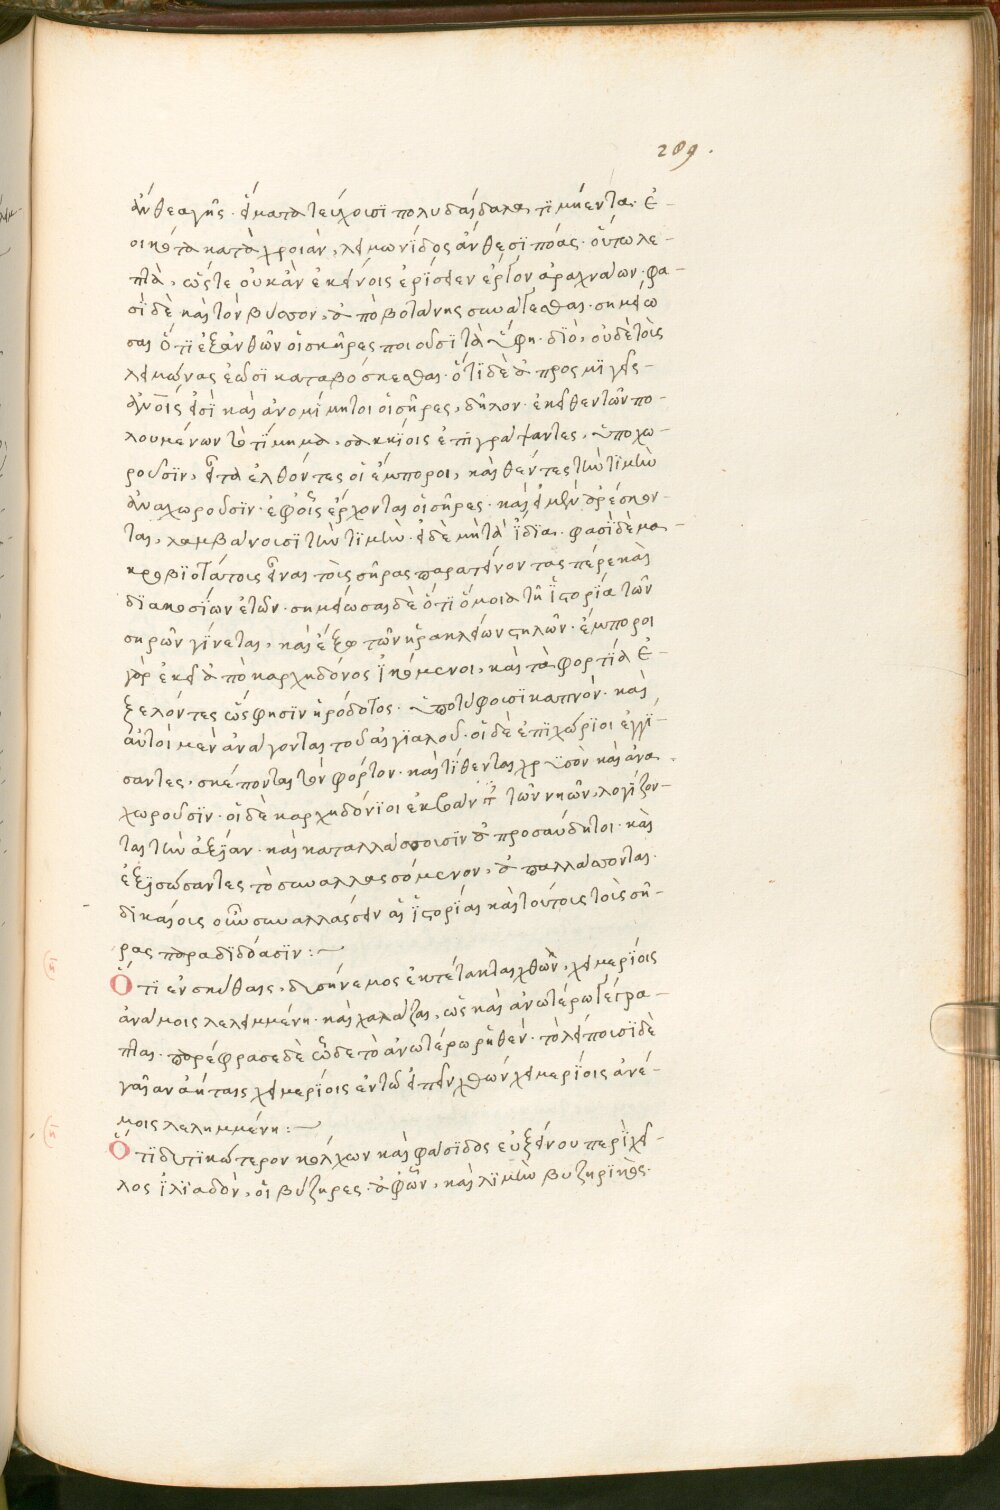 289.
ἀνθεα γῆς. εἵματα τεύχουσι πολυδαίδαλα τιμήεντα. ἐ-
οικότα κατὰ χροιὰν, λειμωνίδος ἄνθεσι πόας. οὕτω λε-
πτὰ, ὥστε οὐκ ἂν ἐκείνοις ἐρίσειεν ἔργον ἀραχνάων. φα-
σὶ δὲ καὶ τὸν βύσσον, ἀπὸ βοτάνης συνάγεσθαι. σημείω
σαι ὅτι ἐξ ἀνθῶν οἱ σῆρες ποιοῦσι τὰ ὕφη. διὸ, οὐδὲ τοὺς
λειμῶνας ἐῶσι καταβόσκεσθαι. ὅτι δὲ ἀπροσμιγεῖς
ἀνοις εἰσὶ καὶ ἀνομίμητοι οἱ σῆρες, δῆλον. ἐκεῖ θεν τῶν πω-
λουμένων τὸ τίμημα, σακκίοις ἐπιγράψαντες, ὑποχω-
ροῦσιν, εἶτα ἐλθόντες οἱ ἔμποροι, καὶ θέντες τὴν τιμὴν
ἀναχωροῦσιν. ἐφ οἷς ἔρχονται οἱ σῆρες. καὶ εἰ μὲν ἀρέσκον-
ται, λαμβάνουσι τὴν τιμὴν. εἰ δὲ μὴ τὰ ἴδια. φασὶ δὲ μα-
κροβιοτάτους εἶναι τοὺς σῆρας παρατείνοντας πέρα καὶ
διακοσίων ἐτῶν. σημείωσαι δὲ ὅτι ὅμοια τῆ ἱστορία τῶν
σηρῶν γίνεται, καὶ ἔξω τῶν ἡρακλείων στηλῶν. ἔμποροι
γὰρ ἐκεῖ ἀπὸ καρχηδόνος ἱκόμενοι, καὶ τὰ φορτία ἐ-
ξελόντες ὥς φησιν ἡρόδοτος. ὑποτύφουσι καπνὸν. καὶ
αὐτοὶ μὲν ἀνάγονται τοῦ αἰγιαλοῦ. οἱ δὲ ἐπιχώριοι ἐγγί-
σαντες, σκέπονται τὸν φόρτον. καὶ τίθενται χρυσὸν καὶ ἀνα-
χωροῦσιν. οἱ δὲ καρχηδόνιοι ἐκβάντες τῶν νηῶν, λογίζον-
ται τὴν ἀξίαν. καὶ καταλλάσσουσιν ἀπροσαύδητοι. καὶ
ἐξισώσαντες τὸ συναλλασσόμενον, ἀπαλλάττονται.
δικαίοις οὖν συναλλάσσειν αἱ ἱστορίαι καὶ τούτοις τοὺς σῆ-
ρας παραδιδόασιν:~
Ὅτι ἐν σκύθαις, δυσήνεμος ἐκτέταται χθὼν, χειμερίοις
ἀνέμοις λελειμμένη. καὶ χαλάζαις, ὡς καὶ ἀνωτέρω γέγρα-
πται. παρέφρασε δὲ ὧδε τὸ ἀνωτέρω ῥηθέν. τὸ λείπουσι δὲ
γαῖαν ἀήταις χειμερίοις ἐν τῶ εἰπεῖν χθὼν χειμερίοις ἀνέ-
μοις λελημμένη:~
Ὅτι δυτικώτερον κόλχων καὶ φάσιδος εὐξείνου περὶ χεῖ-
λος ἰλιαδὸν, οἱ βύζηρες. ἀφ ὧν, καὶ λιμὴν βυζηρικὸς.